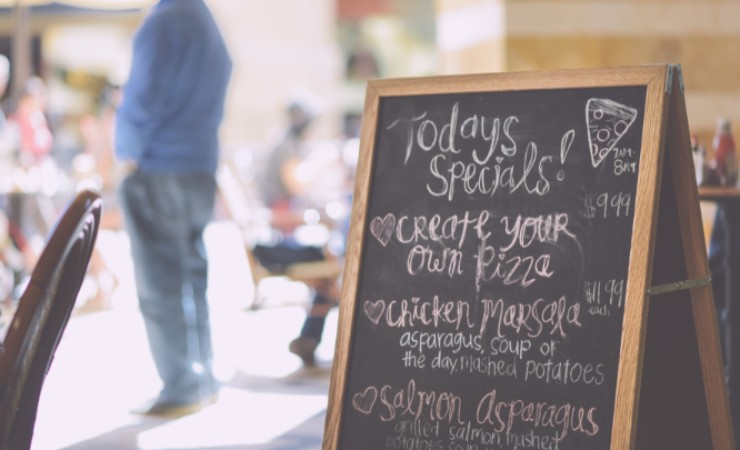 Todays
Specials!
7AM-
8PM
$9.99
CREATE YOUR
OWN PIZZA
$11.99
each
chicken Marsala
asparagus, soup of
the day, mashed potatoes
Salmon Asparagus
grilled salmon, mashed
potatoes, soup